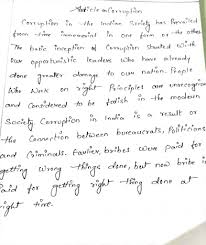 Article on Corruption
Corruption in the Indian Society has Prevailed
from time immemorial in one form or the other
The basic inception of Corruption Started With
our opportunistic leaders who have already
done greater damage to our nation. People
who work on right Principles are unrecognize
and Considered to be foolish in the modern
Society. Corruption in India is a result of
the Connection between bureaucrats, Politicians
and Criminals. Earlier, bribes were paid for
getting wrong things done, but now bribe is
Paid for getting right thing done at
right time.